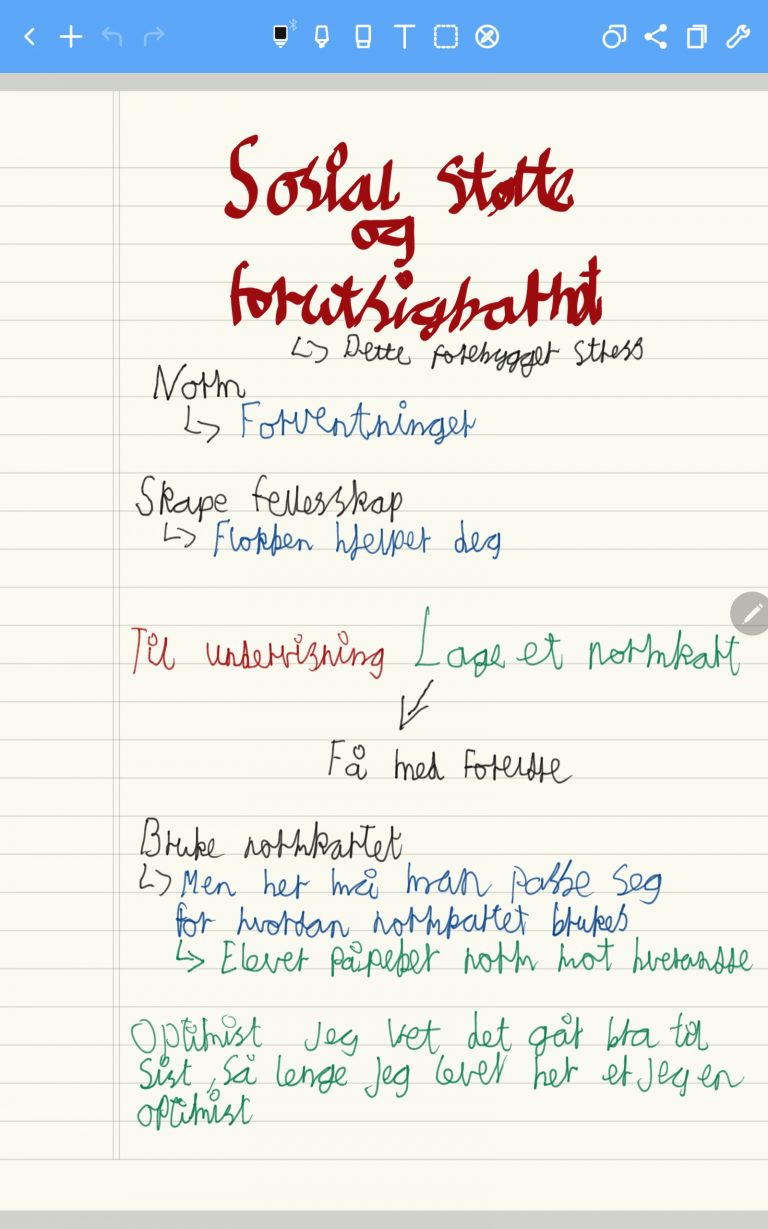 Sosial støtte
og
forutsigbarhet
↳ Dette forebygger stress
Norm
↳ Forventninger
Skape fellesskap
↳ Flokken hjelper deg
Til undervisning Lage et normkart
Få med foreldre
Bruke normkartet
↳ Men her må man passe seg
for hvordan normkartet brukes
↳ Elever påpeker norm mot hverandre
Optimist Jeg vet det går bra til
Sist, så lenge jeg lever her er jeg en
optimist